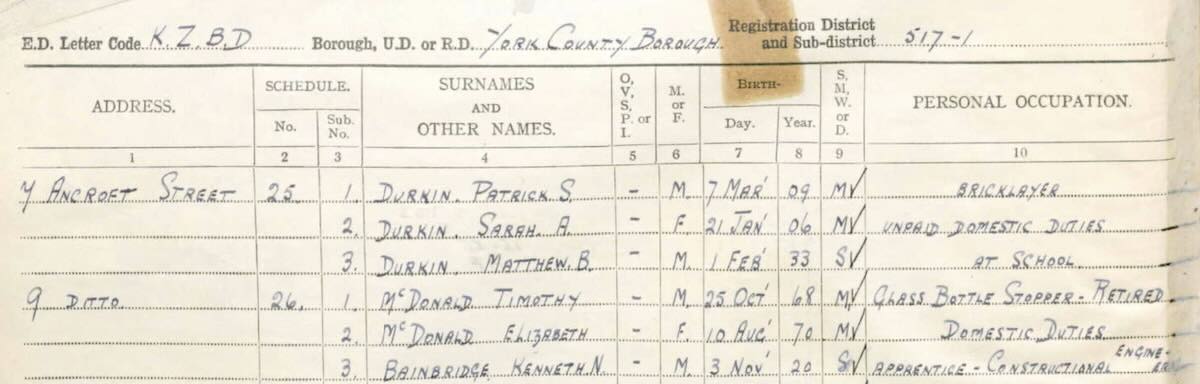 E.D. Letter Code K.Z.B.D Borough, U.D. or R.D. York County Borough. Registration District and Sub-district 517-1
ADDRESS. SCHEDULE. SURNAMES AND OTHER NAMES. O, V, S, P. or I. M. or F. BIRTH- S, M, W. or D. PERSONAL OCCUPATION.
No. Sub. No. Day. Year.
1 2 3 4 5 6 7 8 9 10
7 ANCROFT STREET 25. 1. DURKIN. PATRICK S. - M. 7 MAR' 09 M BRICKLAYER
2. DURKIN. SARAH. A. - F. 21 JAN' 06 M UNPAID DOMESTIC DUTIES
3. DURKIN. MATTHEW. B. - M. 1 FEB' 33 S AT SCHOOL.
9 DITTO 26. 1. McDONALD TIMOTHY - M. 25 OCT' 68 M GLASS BOTTLE STOPPER - RETIRED
2. McDONALD ELIZABETH - F. 10 AUG' 70 M DOMESTIC DUTIES
3. BAINBRIDGE. KENNETH N. - M. 3 NOV' 20 S APPRENTICE - CONSTRUCTIONAL ENGINE-